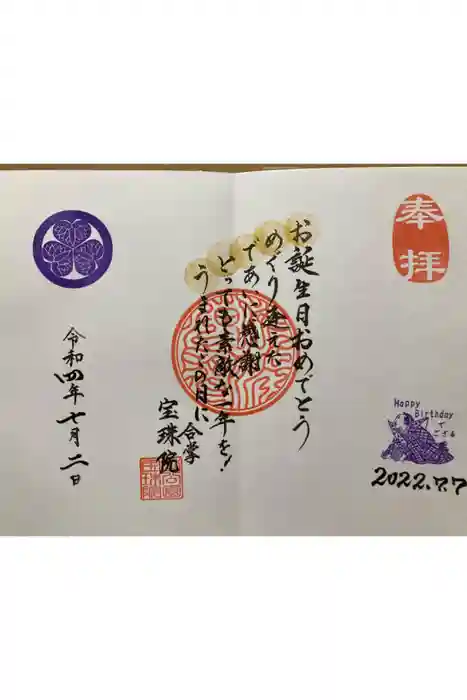 奉拝
Happy
Birthday
で
ござる
2022.7.7
お誕生日おめでとう
めぐり逢えた
であいに感謝
とっても素敵な一年を!
うまれたこの日に
合掌
宝珠院
令和四年七月二日